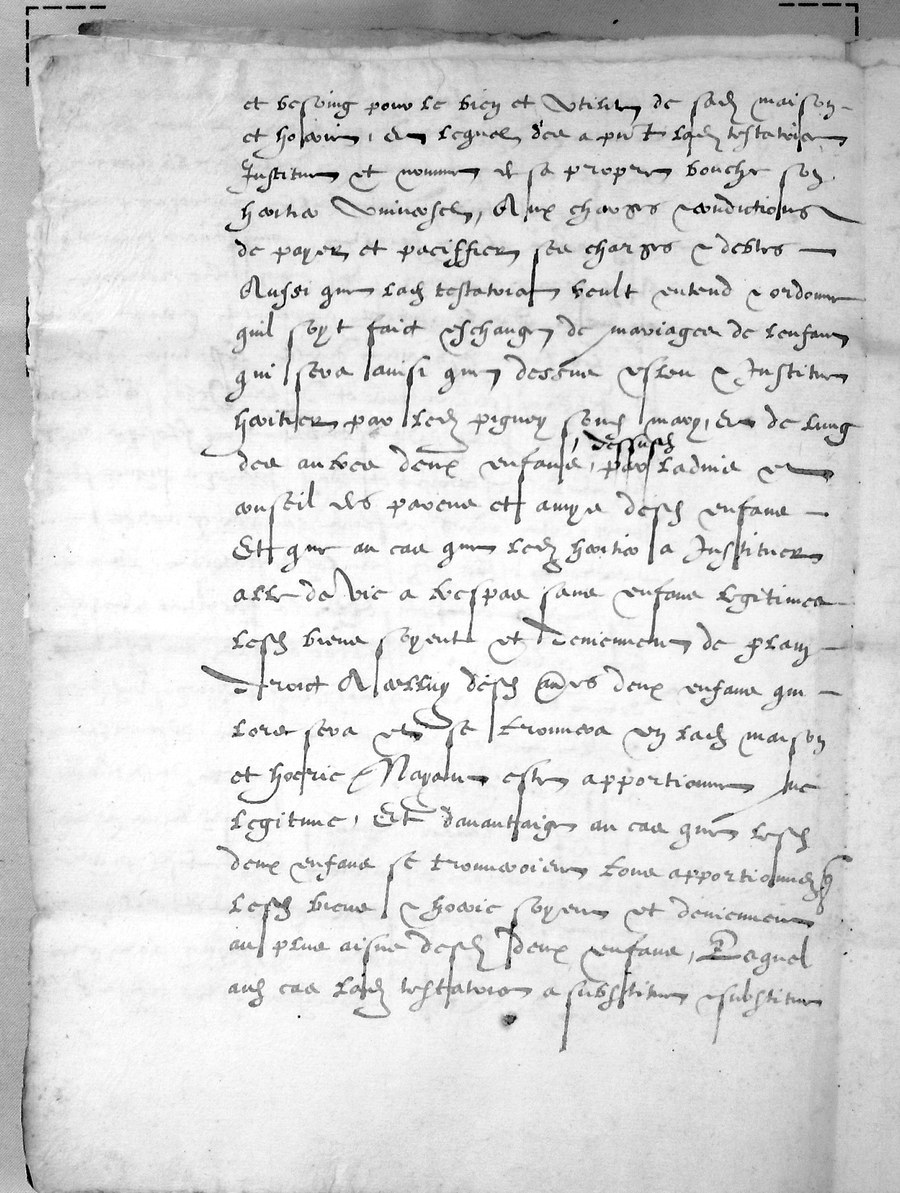 et besoing pour le bien et utilite de sad maison
et hoirie, et lequel des a pnt lad testatrice
Institue et nomme de sa propre bouche son
heritier universel, Aux charges & condictions
de payer et paciffier ses charges & debtes
Aussi que lad testatrice veult entend & ordonne
quil soyt faict eschange de mariages de lenfant
qui sera ainsi que dessus esleu & Institue
heritier par led pignoy son mary, et de lung
des autres deux enfans, par ladvis et
dessusd
conseil des parens et amys desd enfans
Et que au cas que led heritier a Instituer
alle de vie a trespas sans enfans legitimes
lesd biens soyent et deviennent de plain
droict A celluy desd aultres deux enfans qui
lors sera et se trouvera en lad maison
et hoirie Nayant estre apportionne
legitime, Et davantaige au cas que lesd
deux enfans se trouveroient tous apportionnes
lesd biens & hoirie soyent et deviennent
au plus aisne desd deux enfans, Lequel
aud cas lad testatrice a substitue & substitue